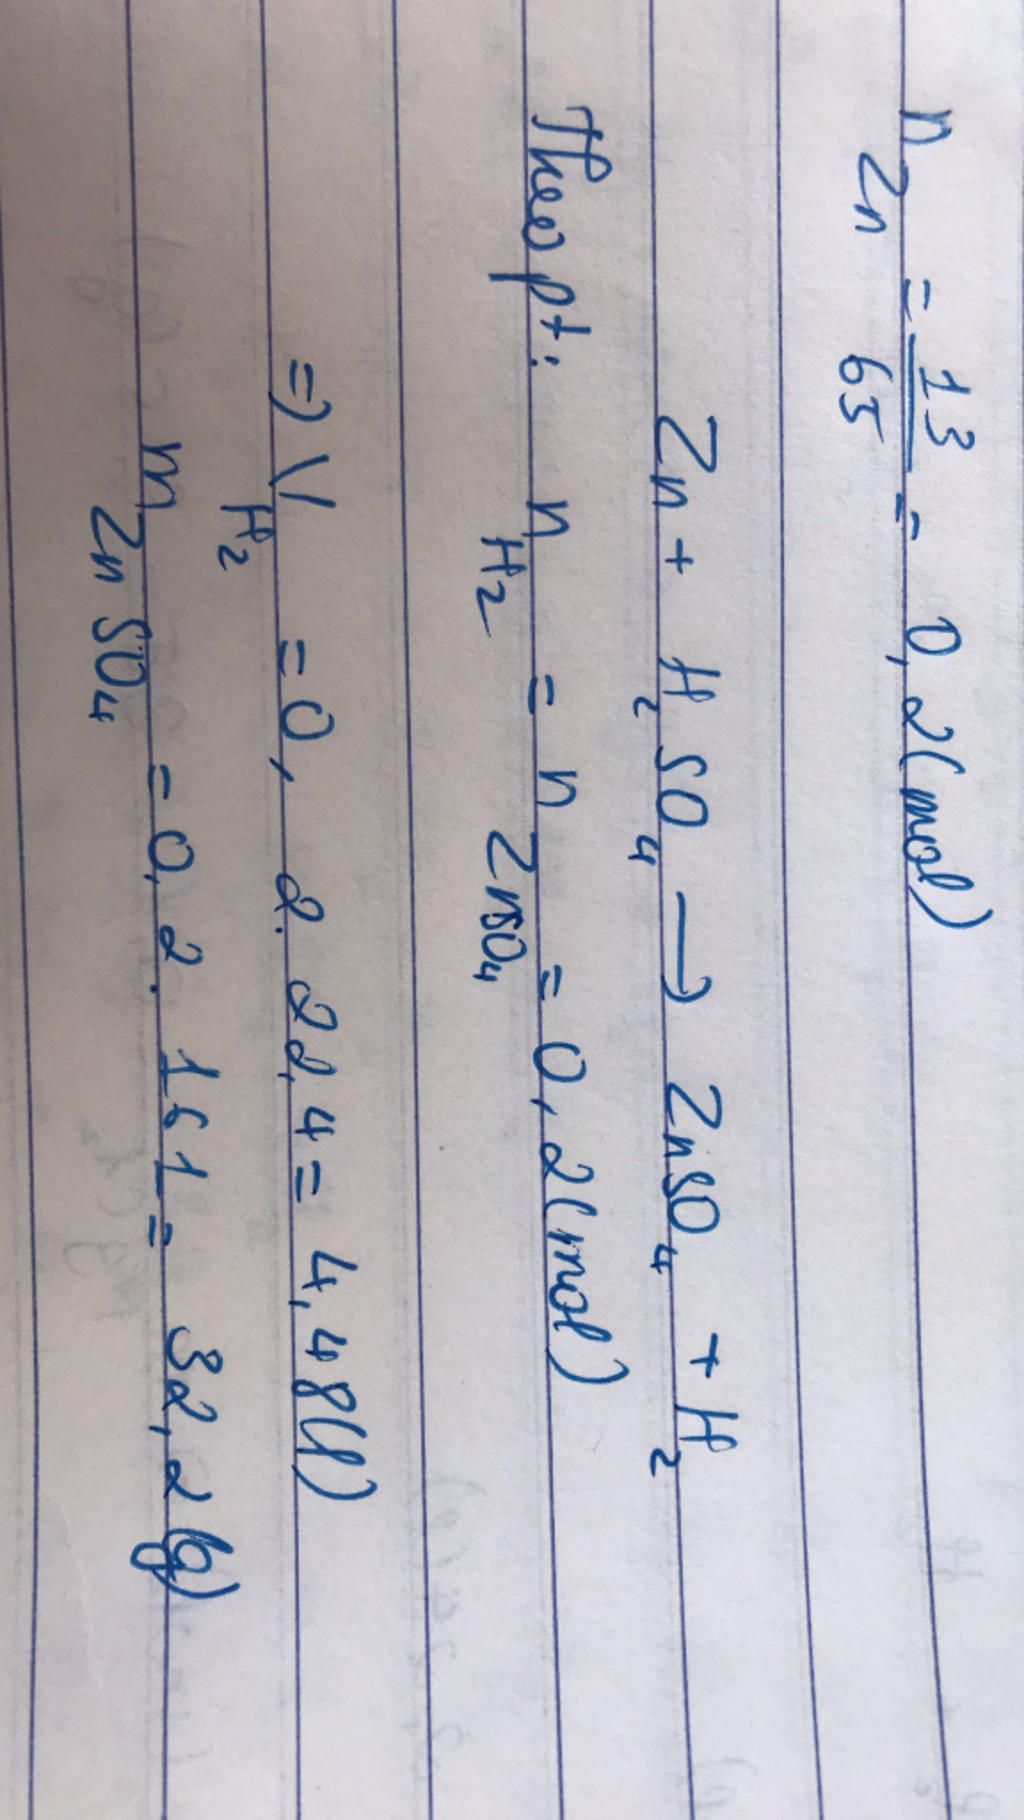 n Zn = 13/65 = 0,2(mol)
Zn + H2SO4 → ZnSO4 + H2
Theo pt: n H2 = n ZnSO4 = 0,2(mol)
=> V H2 = 0,2.22,4 = 4,48(l)
m ZnSO4 = 0,2.161 = 32,2(g)